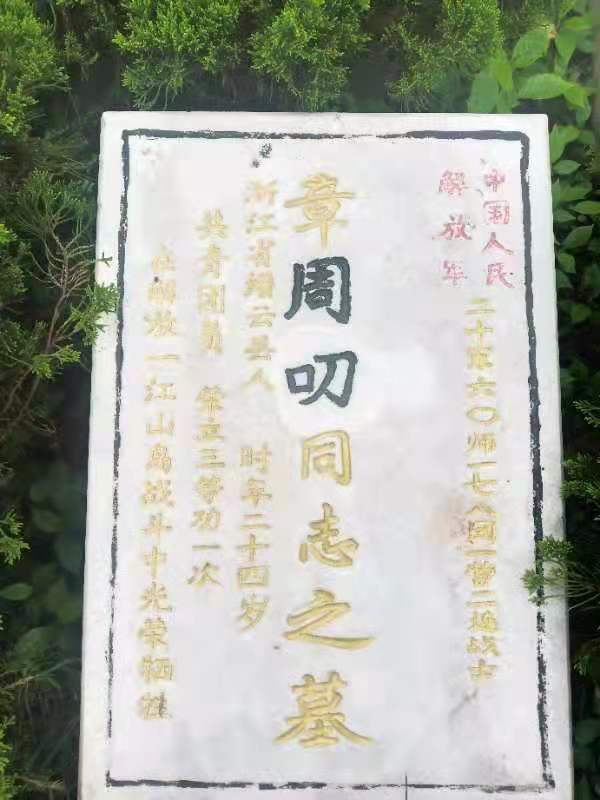 中国人民
解放军
二十军六〇师一七八团一营二连战士
章周叨同志之墓
浙江省缙云县人 时年二十四岁
共青团员 荣立三等功一次
在解放一江山岛战斗中光荣牺牲